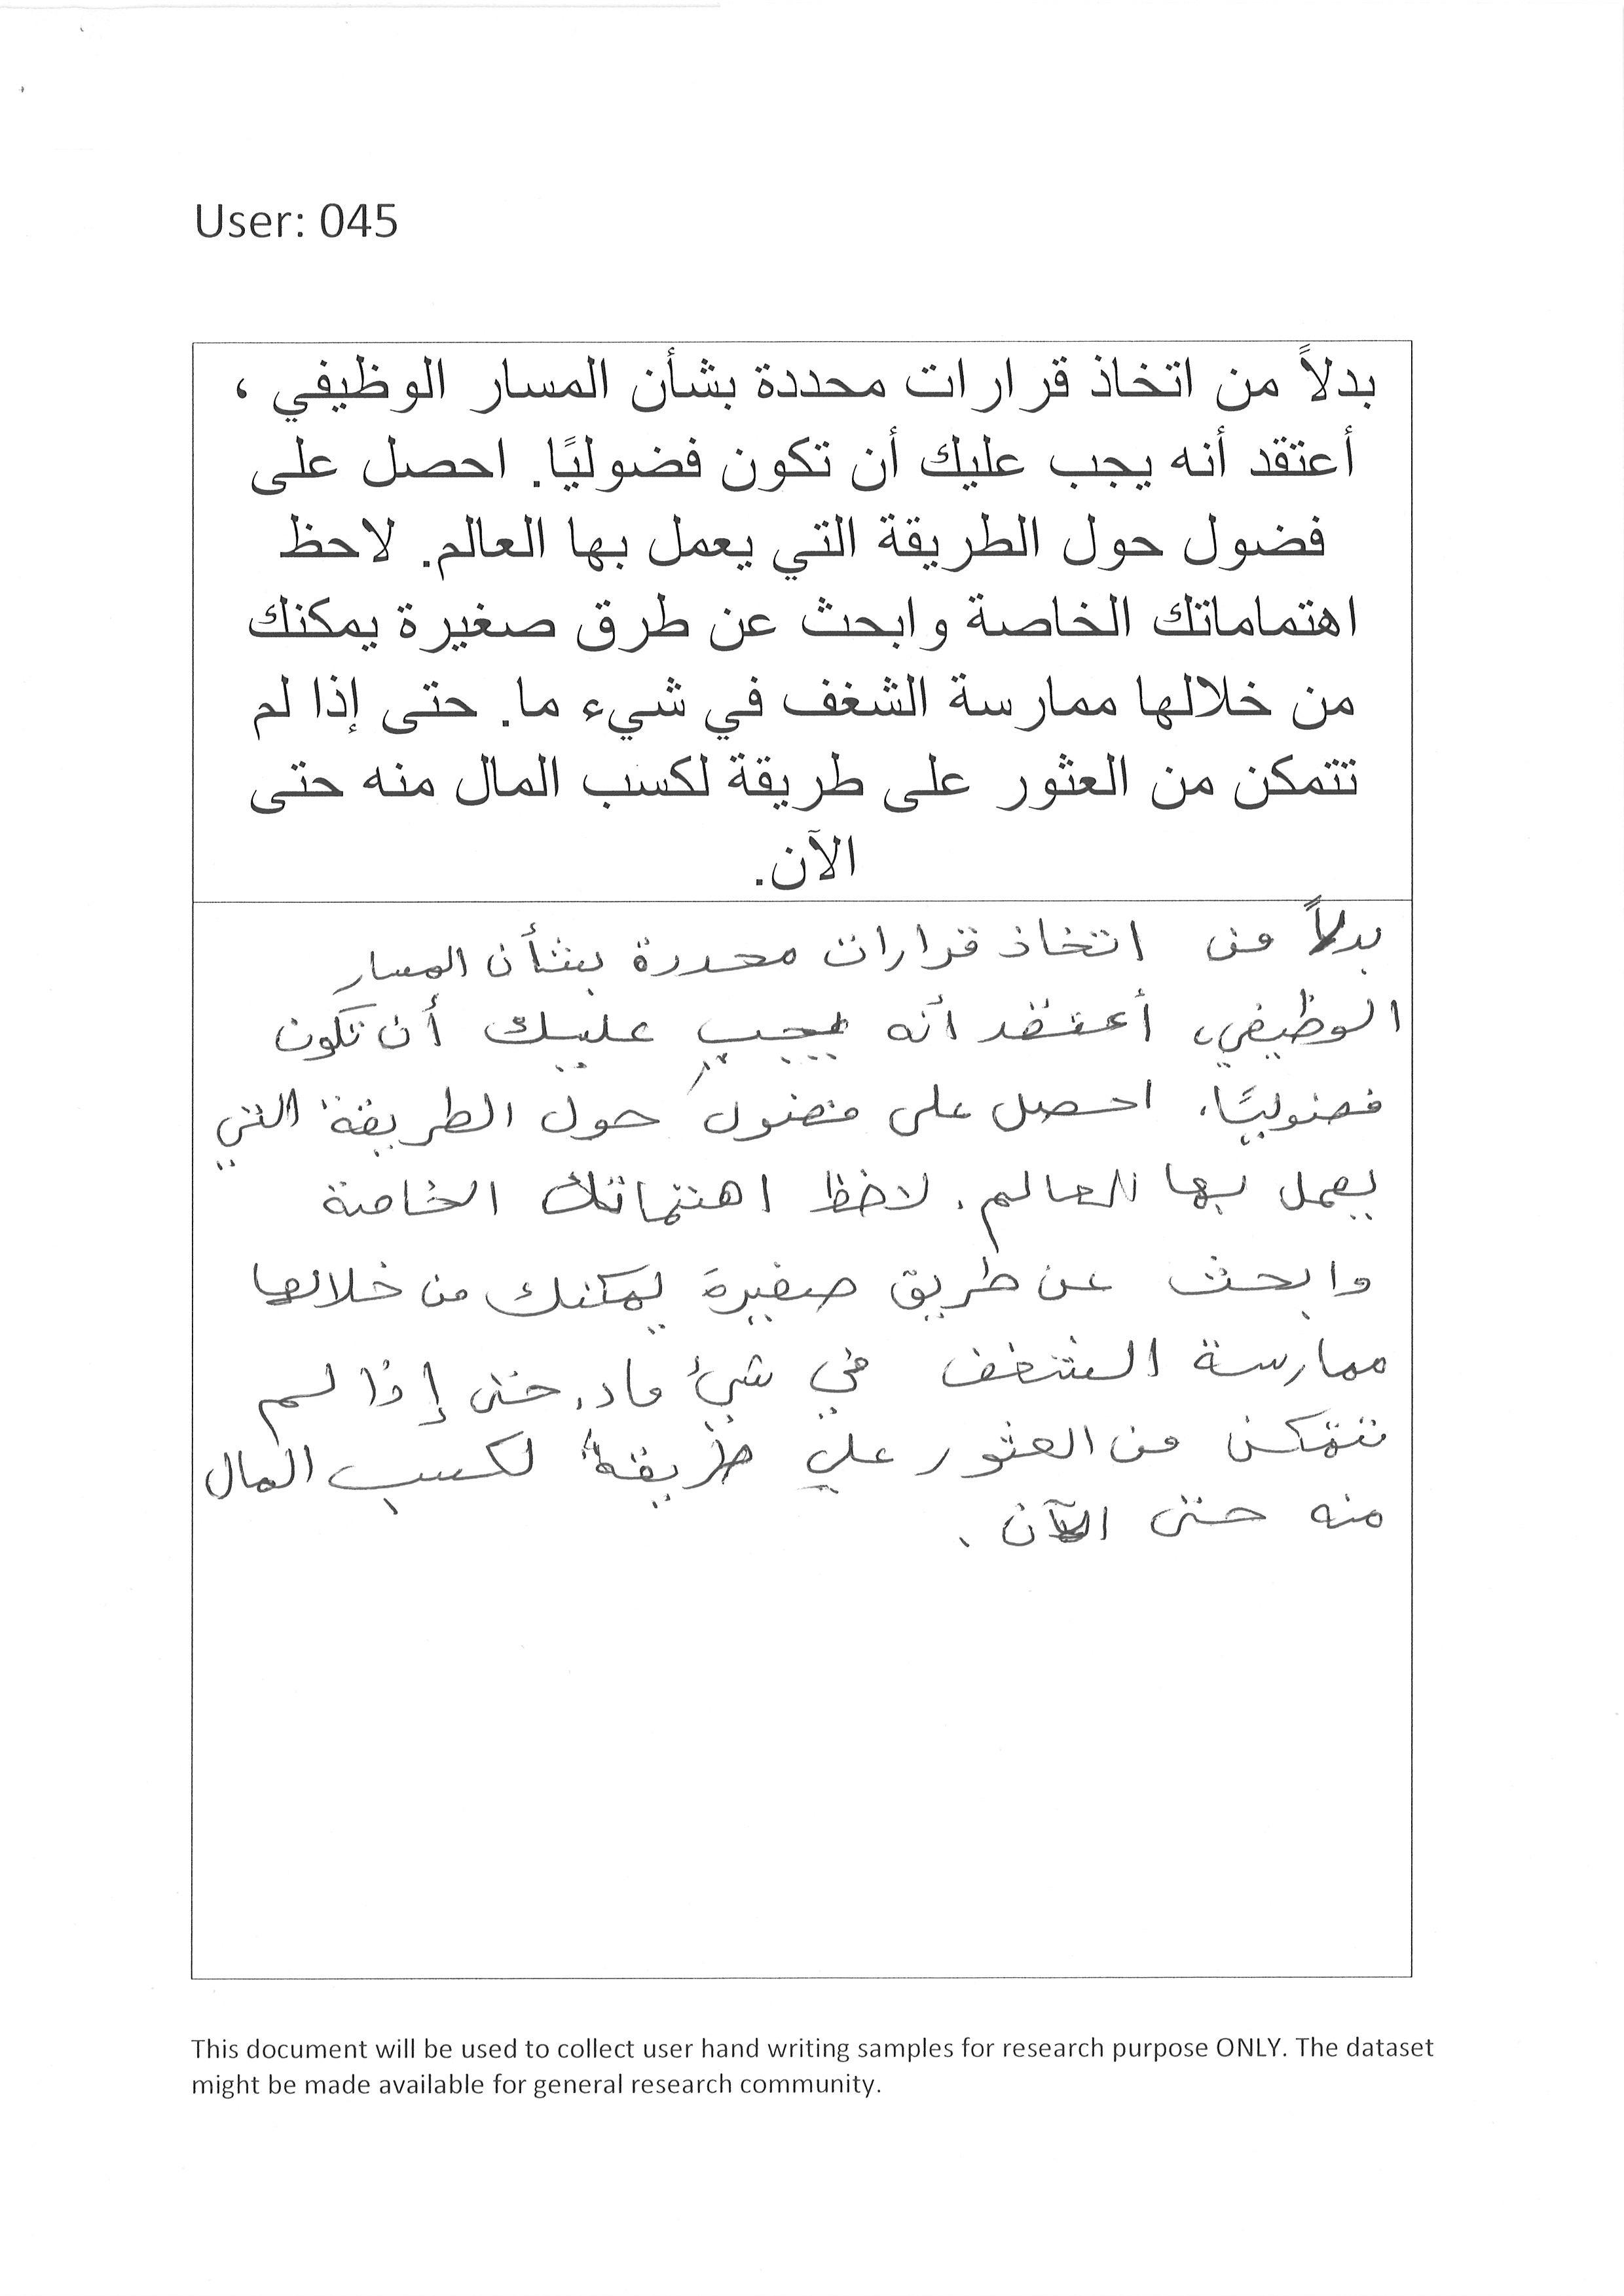 User: 045
بدلاً من اتخاذ قرارات محددة بشأن المسار الوظيفي ،
أعتقد أنه يجب عليك أن تكون فضوليًا. احصل على
فضول حول الطريقة التي يعمل بها العالم. لاحظ
اهتماماتك الخاصة وابحث عن طرق صغيرة يمكنك
من خلالها ممارسة الشغف في شيء ما. حتى إذا لم
تتمكن من العثور على طريقة لكسب المال منه حتى
الآن.
بدلاً من اتخاذ قرارات محددة بشأن المسار
الوظيفي، أعتقد أنه يجب عليك أن تكون
فضوليًا. احصل على فضول حول الطريقة التي
يعمل بها العالم. لاخظ اهتماتك الخاصة
وابحث عن طريق صغيرة يمكنك من خلالها
ممارسة الشغف في شيئ ماد. حتى إذا لم
تتمكن من العثور علي طريقة لكسب المال
منه حتى الآن.
This document will be used to collect user hand writing samples for research purpose ONLY. The dataset
might be made available for general research community.